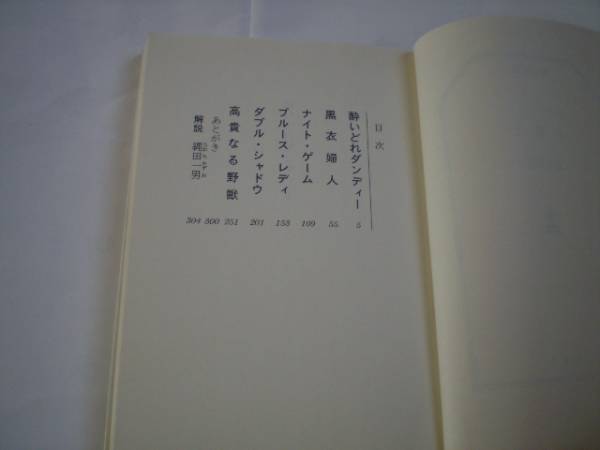 目次
酔いどれダンディー 5
黒衣婦人 55
ナイト・ゲーム 109
ブルース・レディ 153
ダブル・シャドウ 201
高貴なる野獣 251
あとがき 300
解説 縄田一男 304